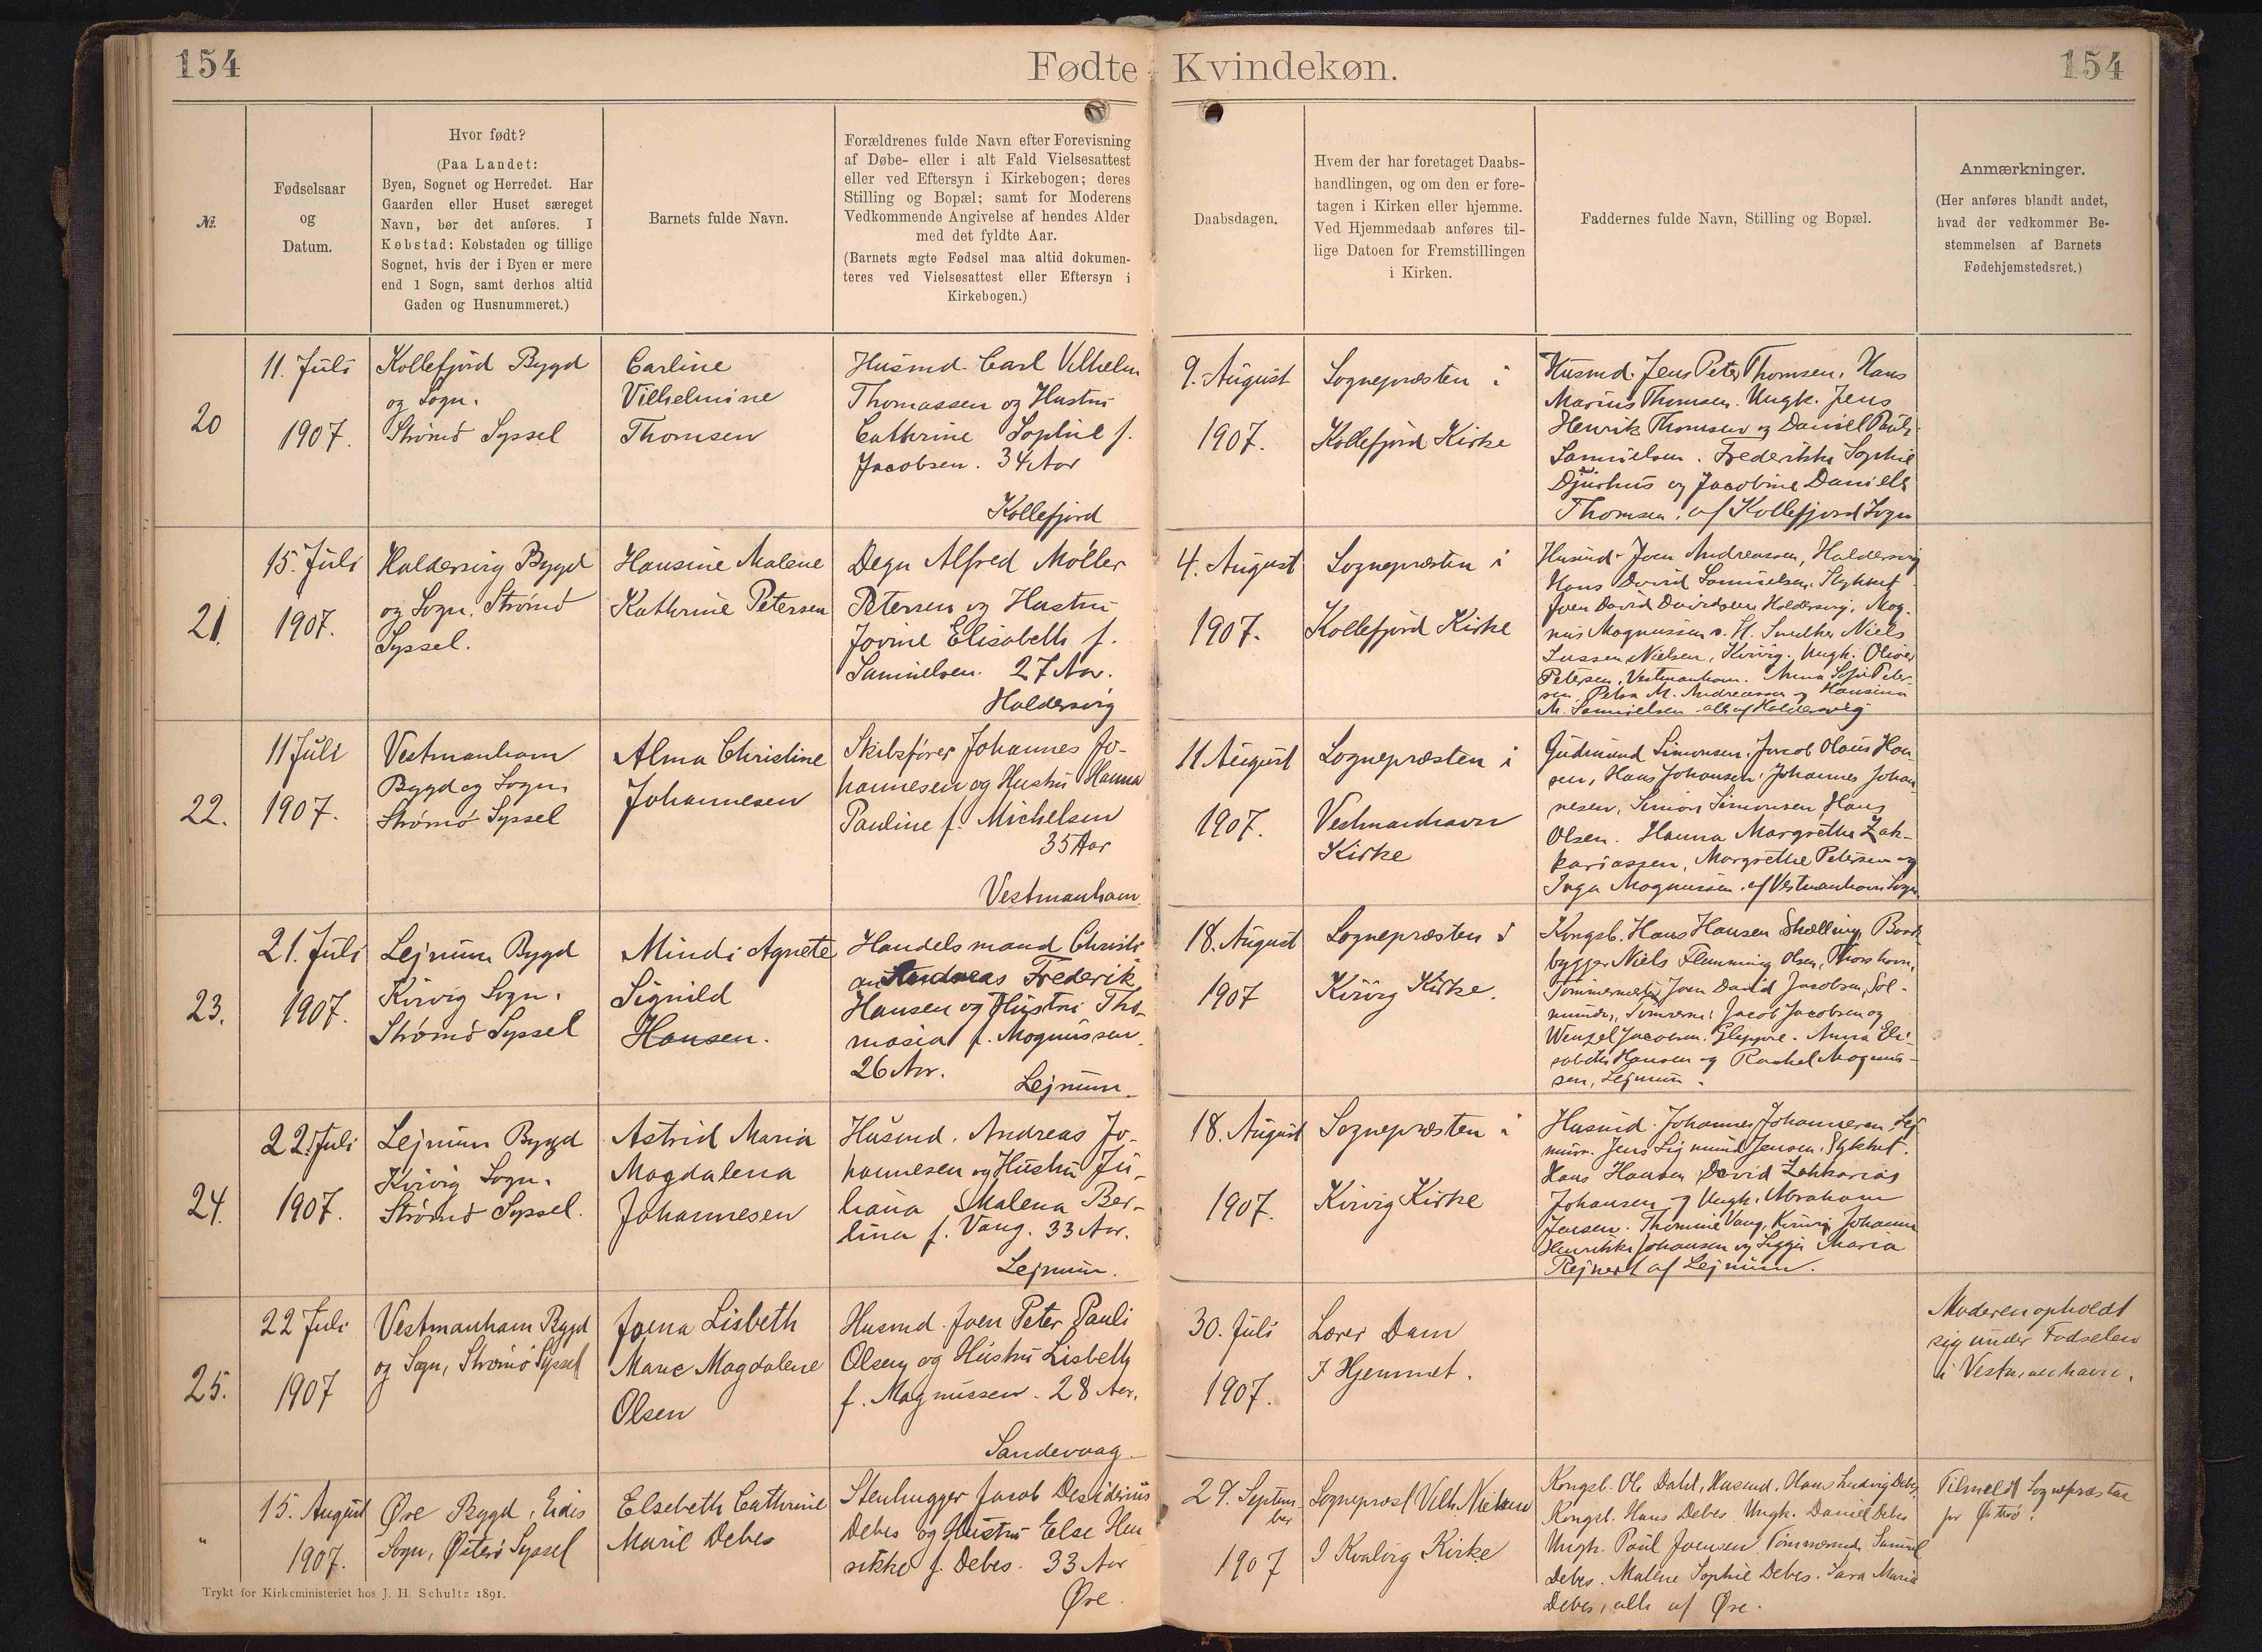 154
Fødte Kvindekøn.
154
№.
Fødselsaar
og
Datum.
Hvor født?
(Paa Landet:
Byen, Sognet og Herredet. Har
Gaarden eller Huset særeget
Navn, bør det anføres. I
Købstad: Købstaden og tillige
Sognet, hvis der i Byen er mere
end 1 Sogn, samt derhos altid
Gaden og Husnummeret.)
Barnets fulde Navn.
Forældrenes fulde Navn efter Forevisning
af Døbe- eller i alt Fald Vielsesattest
eller ved Eftersyn i Kirkebogen; deres
Stilling og Bopæl; samt for Moderens
Vedkommende Angivelse af hendes Alder
med det fyldte Aar.
(Barnets ægte Fødsel maa altid dokumen-
teres ved Vielsesattest eller Eftersyn i
Kirkebogen.)
Daabsdagen.
Hvem der har foretaget Daabs-
handlingen, og om den er fore-
tagen i Kirken eller hjemme.
Ved Hjemmedaab anføres til-
lige Datoen for Fremstillingen
i Kirken.
Faddernes fulde Navn, Stilling og Bopæl.
Anmærkninger.
(Her anføres blandt andet,
hvad der vedkommer Be-
stemmelsen af Barnets
Fødehjemstedsret.)
20
11. Juli
1907.
Kollefjord Bygd
og Sogn.
Strømø Syssel
Carline
Vilhelmine
Thomsen
Husmd. Carl Vilhelm
Thomassen og Hustru
Cathrine Sophie f.
Jacobsen. 34 Aar
Kollefjord
9. August
1907.
Sognepræsten i
Kollefjord Kirke
Husmd. Jens Peter Thomsen, Hans
Marius Thomsen. Ungk. Jens
Henrik Thomsen og Daniel Pauli
Samuelsen. Frederikke Sophie
Djurhus og Jacobine Daniele
Thomsen, af Kollefjord Sogn
21.
15. Juli
1907.
Haldersvig Bygd
og Sogn. Strømø
Syssel.
Hansine Malene
Kathrine Petersen
Degn Alfred Møller
Petersen og Hustru
Jovine Elisabeth f.
Samuelsen. 27 Aar.
Haldersvig
4. August
1907.
Sognepræsten i
Kollefjord Kirke
Husmd. Joen Andreassen, Haldersvig
Hans David Samuelsen, Stykket
Joen David Davidsen Haldersvig, Mag-
nus Magnussen s. St. Snedker Niels
Nielsen, Kvivig. Ungk. Oliver
Petersen, Vestmanhavn. Anna Sofie Peter-
sen, Petra M. Andreassen og Hansina
M. Samuelsen alle af Haldersvig
22.
11 Juli
1907.
Vestmanhavn
Bygd og Sogn,
Strømø Syssel
Alma Christine
Johannesen
Skibsfører Johannes Jo-
hannesen og Hustru Hanna
Pauline f. Michelsen
35 Aar
Vestmanhavn.
11 August
1907.
Sognepræsten i
Vestmanhavn
Kirke
Gudmund Simonsen, Jacob Olaus Han-
sen, Hans Johansen, Johannes Johan-
nesen, Simon Simonsen, Hans
Olsen. Hanna Margrethe Zak-
kariassen, Margrethe Petersen og
Inga Magnussen. af Vestmanhavn Sogn
23.
21. Juli
1907.
Lejnum Bygd
Kvivig Sogn.
Strømø Syssel
Mindi Agnete
Signild
Hansen.
Handelsmand Christi-
an Andreas Frederik
Hansen og Hustru Tho-
masia f. Magnussen.
26 Aar.
Lejnum.
18. August
1907
Sognepræsten i
Kvivig Kirke.
Kongsb. Hans Hansen Skælling, Baad-
bygger Niels Flemming Olsen, Thorshavn,
Joen David Jacobsen, Sol-
munde, Jacob Jacobsen og
Wenzel Jacobsen. Glyppre. Anna Eli-
sabeth Hansen og Rachel Magnus-
sen, Lejnum.
24.
22. Juli
1907.
Lejnum Bygd
Kvivig Sogn.
Strømø Syssel.
Astrid Maria
Magdalena
Johannesen
Husmd. Andreas Jo-
hannesen og Hustru Ju-
liana Malena Ber-
lina f. Vang. 33 Aar.
Lejnum.
18. August
1907.
Sognepræsten i
Kvivig Kirke
Husmd. Johannes Johannesen, Lej-
num. Jens Sigmund Jensen, Stykket.
Hans Hansen David Zakkarias
Johansen og Ungk. Abraham
Jensen. Thomine Vang, Kvivig, Johanne
Henrikke Johansen og Sigga Maria
Rejnert af Lejnum.
25.
22 Juli
1907
Vestmanhavn Bygd
og Sogn, Strømø Syssel
Joena Lisbeth
Marie Magdalene
Olsen
Husmd. Joen Peter Pauli
Olsen og Hustru Lisbeth
f. Magnussen. 28 Aar.
Sandevaag.
30. Juli
1907.
Lærer Dam
I Hjemmet.
Moderen opholdt
sig under Fødselen
i Vestmanhavn.
"
15. August
1907.
Øre Bygd, Eidis
Sogn, Østerø Syssel
Elsebeth Cathrine
Marie Debes
Stenhugger Jacob Desiderius
Debes og Hustru Else Hen-
rikke f. Debes. 33 Aar
Øre.
29. Septem-
ber
1907
Sognepræst Vilh. Nielsen
I Kvalvig Kirke
Kongsb. Ole Dahl, Husmd. Hans Ludvig Debes,
Kongsb. Hans Debes. Ungk. Daniel Debes
Ungk. Paul Joensen. Tømmermd. Samuel
Debes. Malene Sophie Debes. Sara Maria
Debes, alle af Øre.
Tilmeldt Sognepræsten
for Østerø.
Trykt for Kirkeministeriet hos J. H. Schultz 1891.